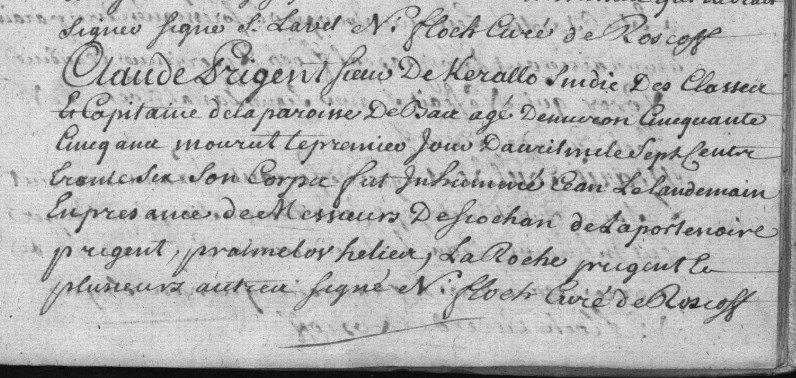 signer signé S. Lavel N. floch Curé de Roscoff
Claude Prigent sieur De Kerallo Sindic Des Classes
Et Capitaine dela paroisse De Baz agé Denviron Cinquante
Cinq ans mourut le premier Jour Davril mile Sept Cents
trante six son Corps fut Inhummé Ean Le landemain
En presance de Messieurs De Rochan de La portenoire
prigent, pratmelou helies, La Roche prigent Et
plusieurs autres signé N. floch Curé de Roscoff